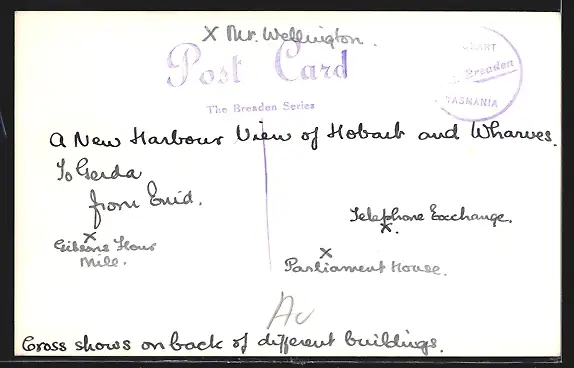 X Mr. Wellington.
Post Card
The Breaden Series
Breaden
TASMANIA
A New Harbour View of Hobart and Wharves.
To Gerda
from Enid.
Telephone Exchange.
X.
X
Gibsons Flour
Mill.
X
Parliament House.
Cross shows on back of different buildings.